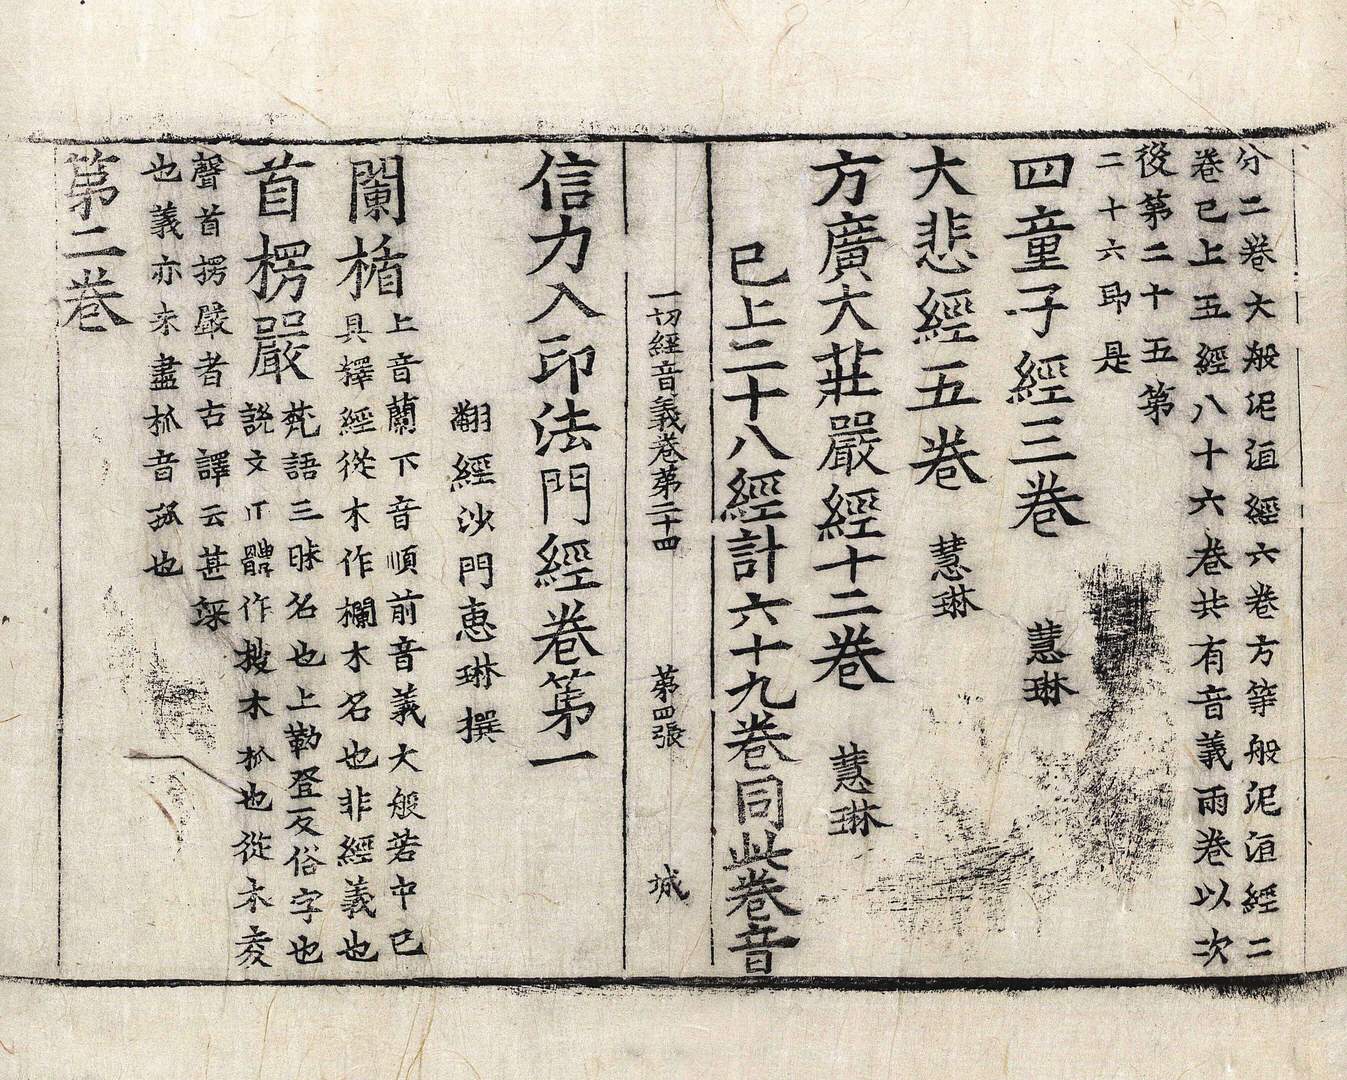 分二卷大般泥洹經六卷方等般泥洹經二
卷已上五經八十六卷共有音義雨卷以次
後第二十五第
二十六即是
四童子經三卷 慧琳
大悲經五卷 慧琳
方廣大莊嚴經十二卷 慧琳
已上二十八經計六十九卷同此卷音
一切經音義卷第二十四 第四張 城
信力入印法門經卷第一
翻經沙門惠琳撰
闌楯上音蘭下音順前音義大般若中已
具釋經從木作欄木名也非經義也
首楞嚴梵語三昧名也上勒登反俗字也
說文正體作棱木柧也從木夌
聲首楞嚴者古譯云甚深
也義亦未盡柧音孤也
第二卷